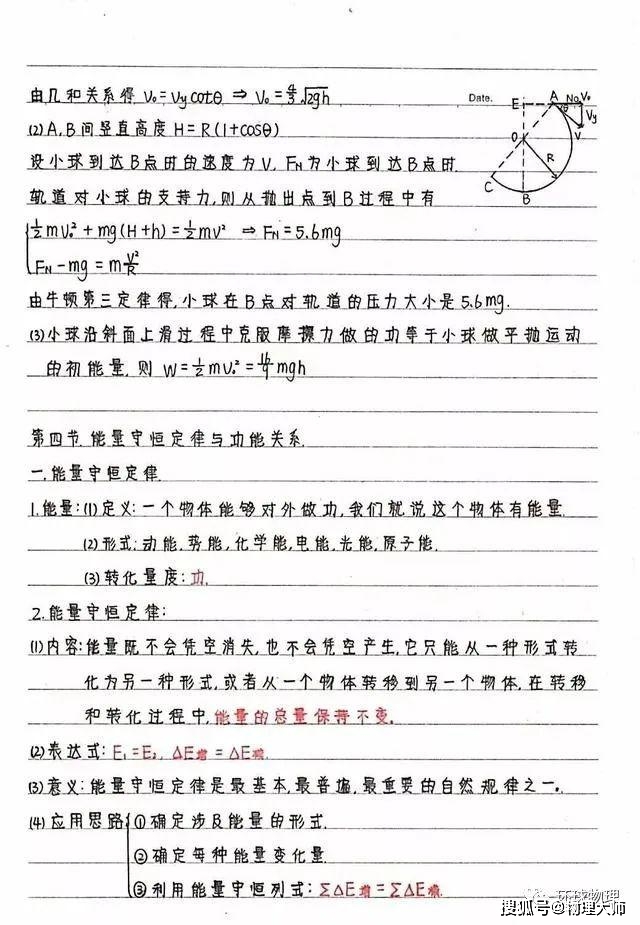 Date.
No.
由几和关系得 V₀=Vycotθ ⇒ V₀=4/3√2gh
E A V₀ θ Vy V O R C B
(2)A,B间竖直高度H=R(1+cosθ)
设小球到达B点时的速度为V, FN为小球到达B点时
轨道对小球的支持力,则从抛出点到B过程中有
½mV₀²+mg(H+h)=½mv² ⇒ FN=5.6mg
FN-mg=mV²/R
由牛顿第三定律得,小球在B点对轨道的压力大小是5.6mg.
(3)小球沿斜面上滑过程中克服摩擦力做的功等于小球做平抛运动
的初能量,则 W=½mV₀²=16/9mgh
第四节.能量守恒定律与功能关系.
一.能量守恒定律.
1.能量:(1)定义:一个物体能够对外做功,我们就说这个物体有能量.
(2)形式:动能,势能,化学能,电能,光能,原子能.
(3)转化量度:功.
2.能量守恒定律:
(1)内容:能量既不会凭空消失,也不会凭空产生,它只能从一种形式转
化为另一种形式,或者从一个物体转移到另一个物体,在转移
和转化过程中,能量的总量保持不变。
(2)表达式:E₁=E₂, ΔE增=ΔE减.
(3)意义:能量守恒定律是最基本,最普遍,最重要的自然规律之一。
(4)应用思路{①确定涉及能量的形式.
②确定每种能量变化量.
③利用能量守恒列式:ΣΔE增=ΣΔE减.
环球物理
搜狐号@物理大师